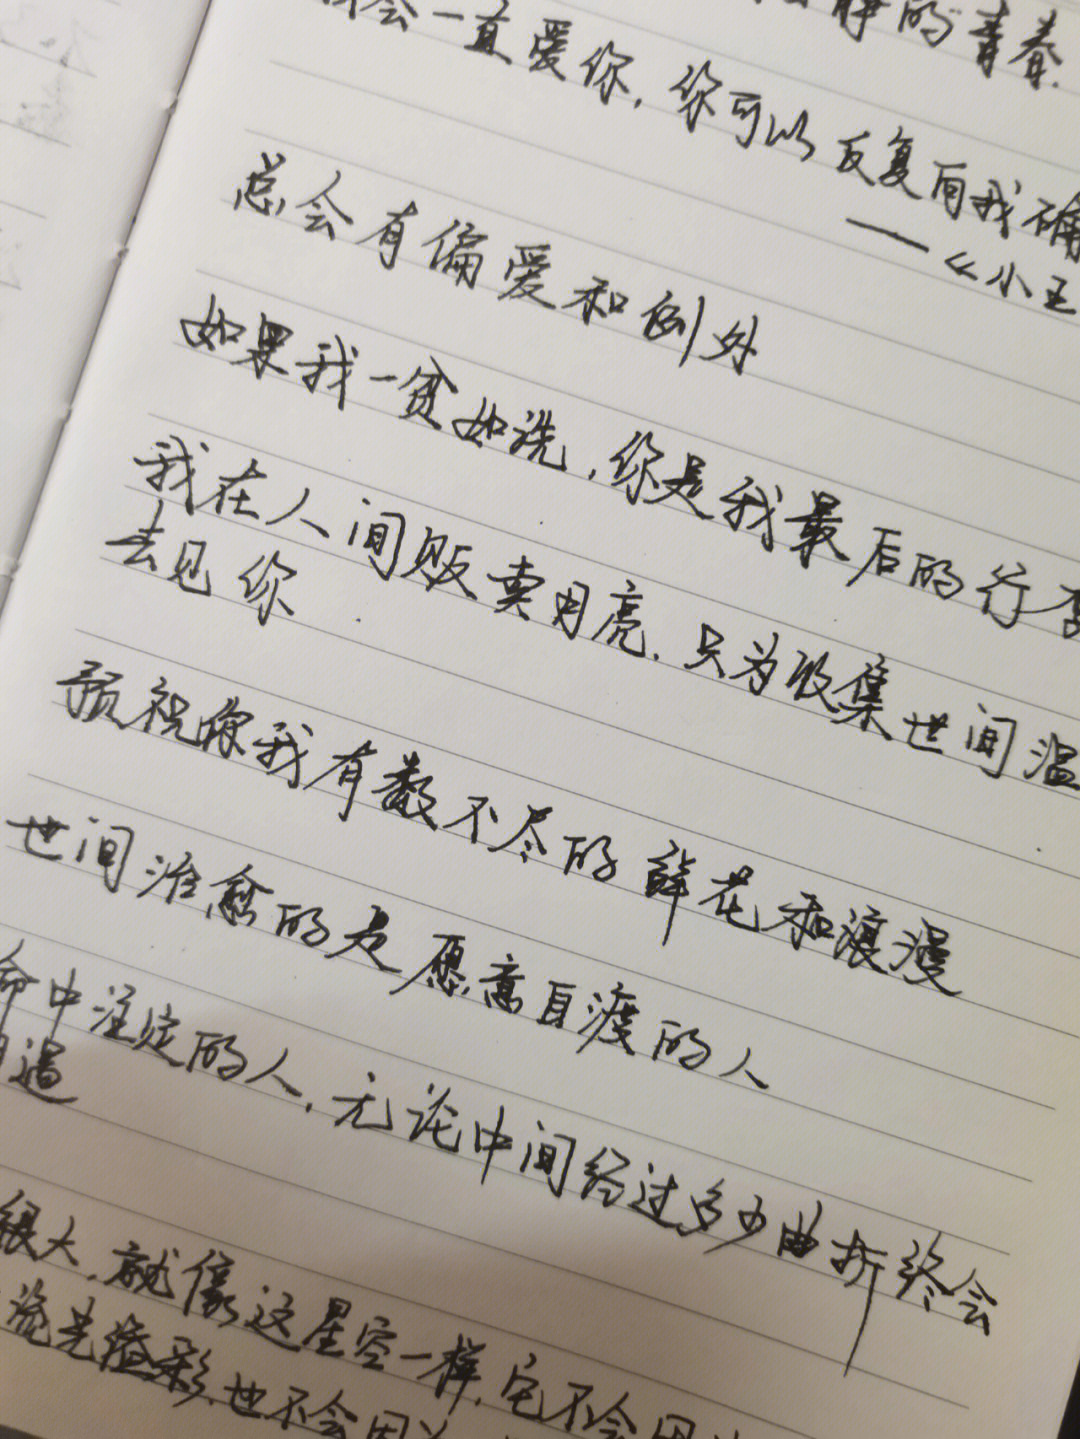 静的青春.
会一直爱你,你可以反复向我确
——《小王
总会有偏爱和例外
如果我一贫如洗,你是我最后的行李
我在人间贩卖月亮.只为收集世间温
去见你
预祝你我有数不尽的鲜花和浪漫
世间治愈的是愿意自渡的人
命中注定的人,无论中间经过多少曲折终会
相遇
很大,就像这星空一样,它不会因为
流光溢彩,也不会因为